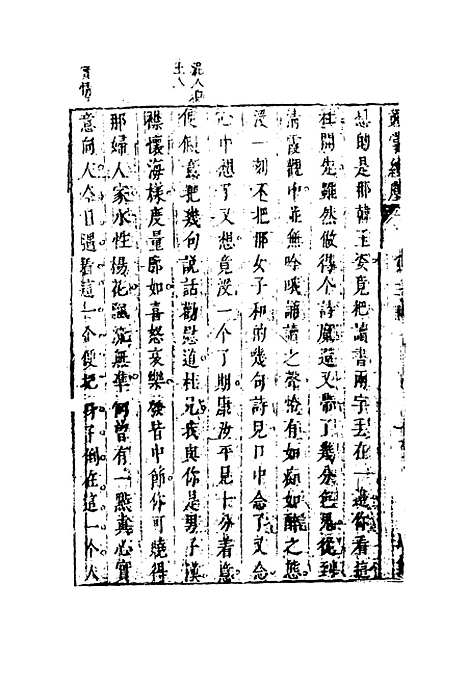 想的是那韓玉姿竟把讀書兩字丟在一邊你看這
杜開先雖然做得個詩魔還又帶了幾分色鬼從到
清霞觀中並無吟哦誦讀之聲恰有如痴如醉之態
沒一刻不把那女子和的幾句詩兒口中念了又念
心中想了又想竟沒一個了期康汝平見十分着意
便假意把幾句說話勸慰道杜兄我與你是男子漢
襟懷海樣度量廓如喜怒哀樂發皆中節你可曉得
那婦人家水性楊花飄蕩無準何曾有一點真心實
意向人今日遇着這一個便把身子倒在這一個人
實情